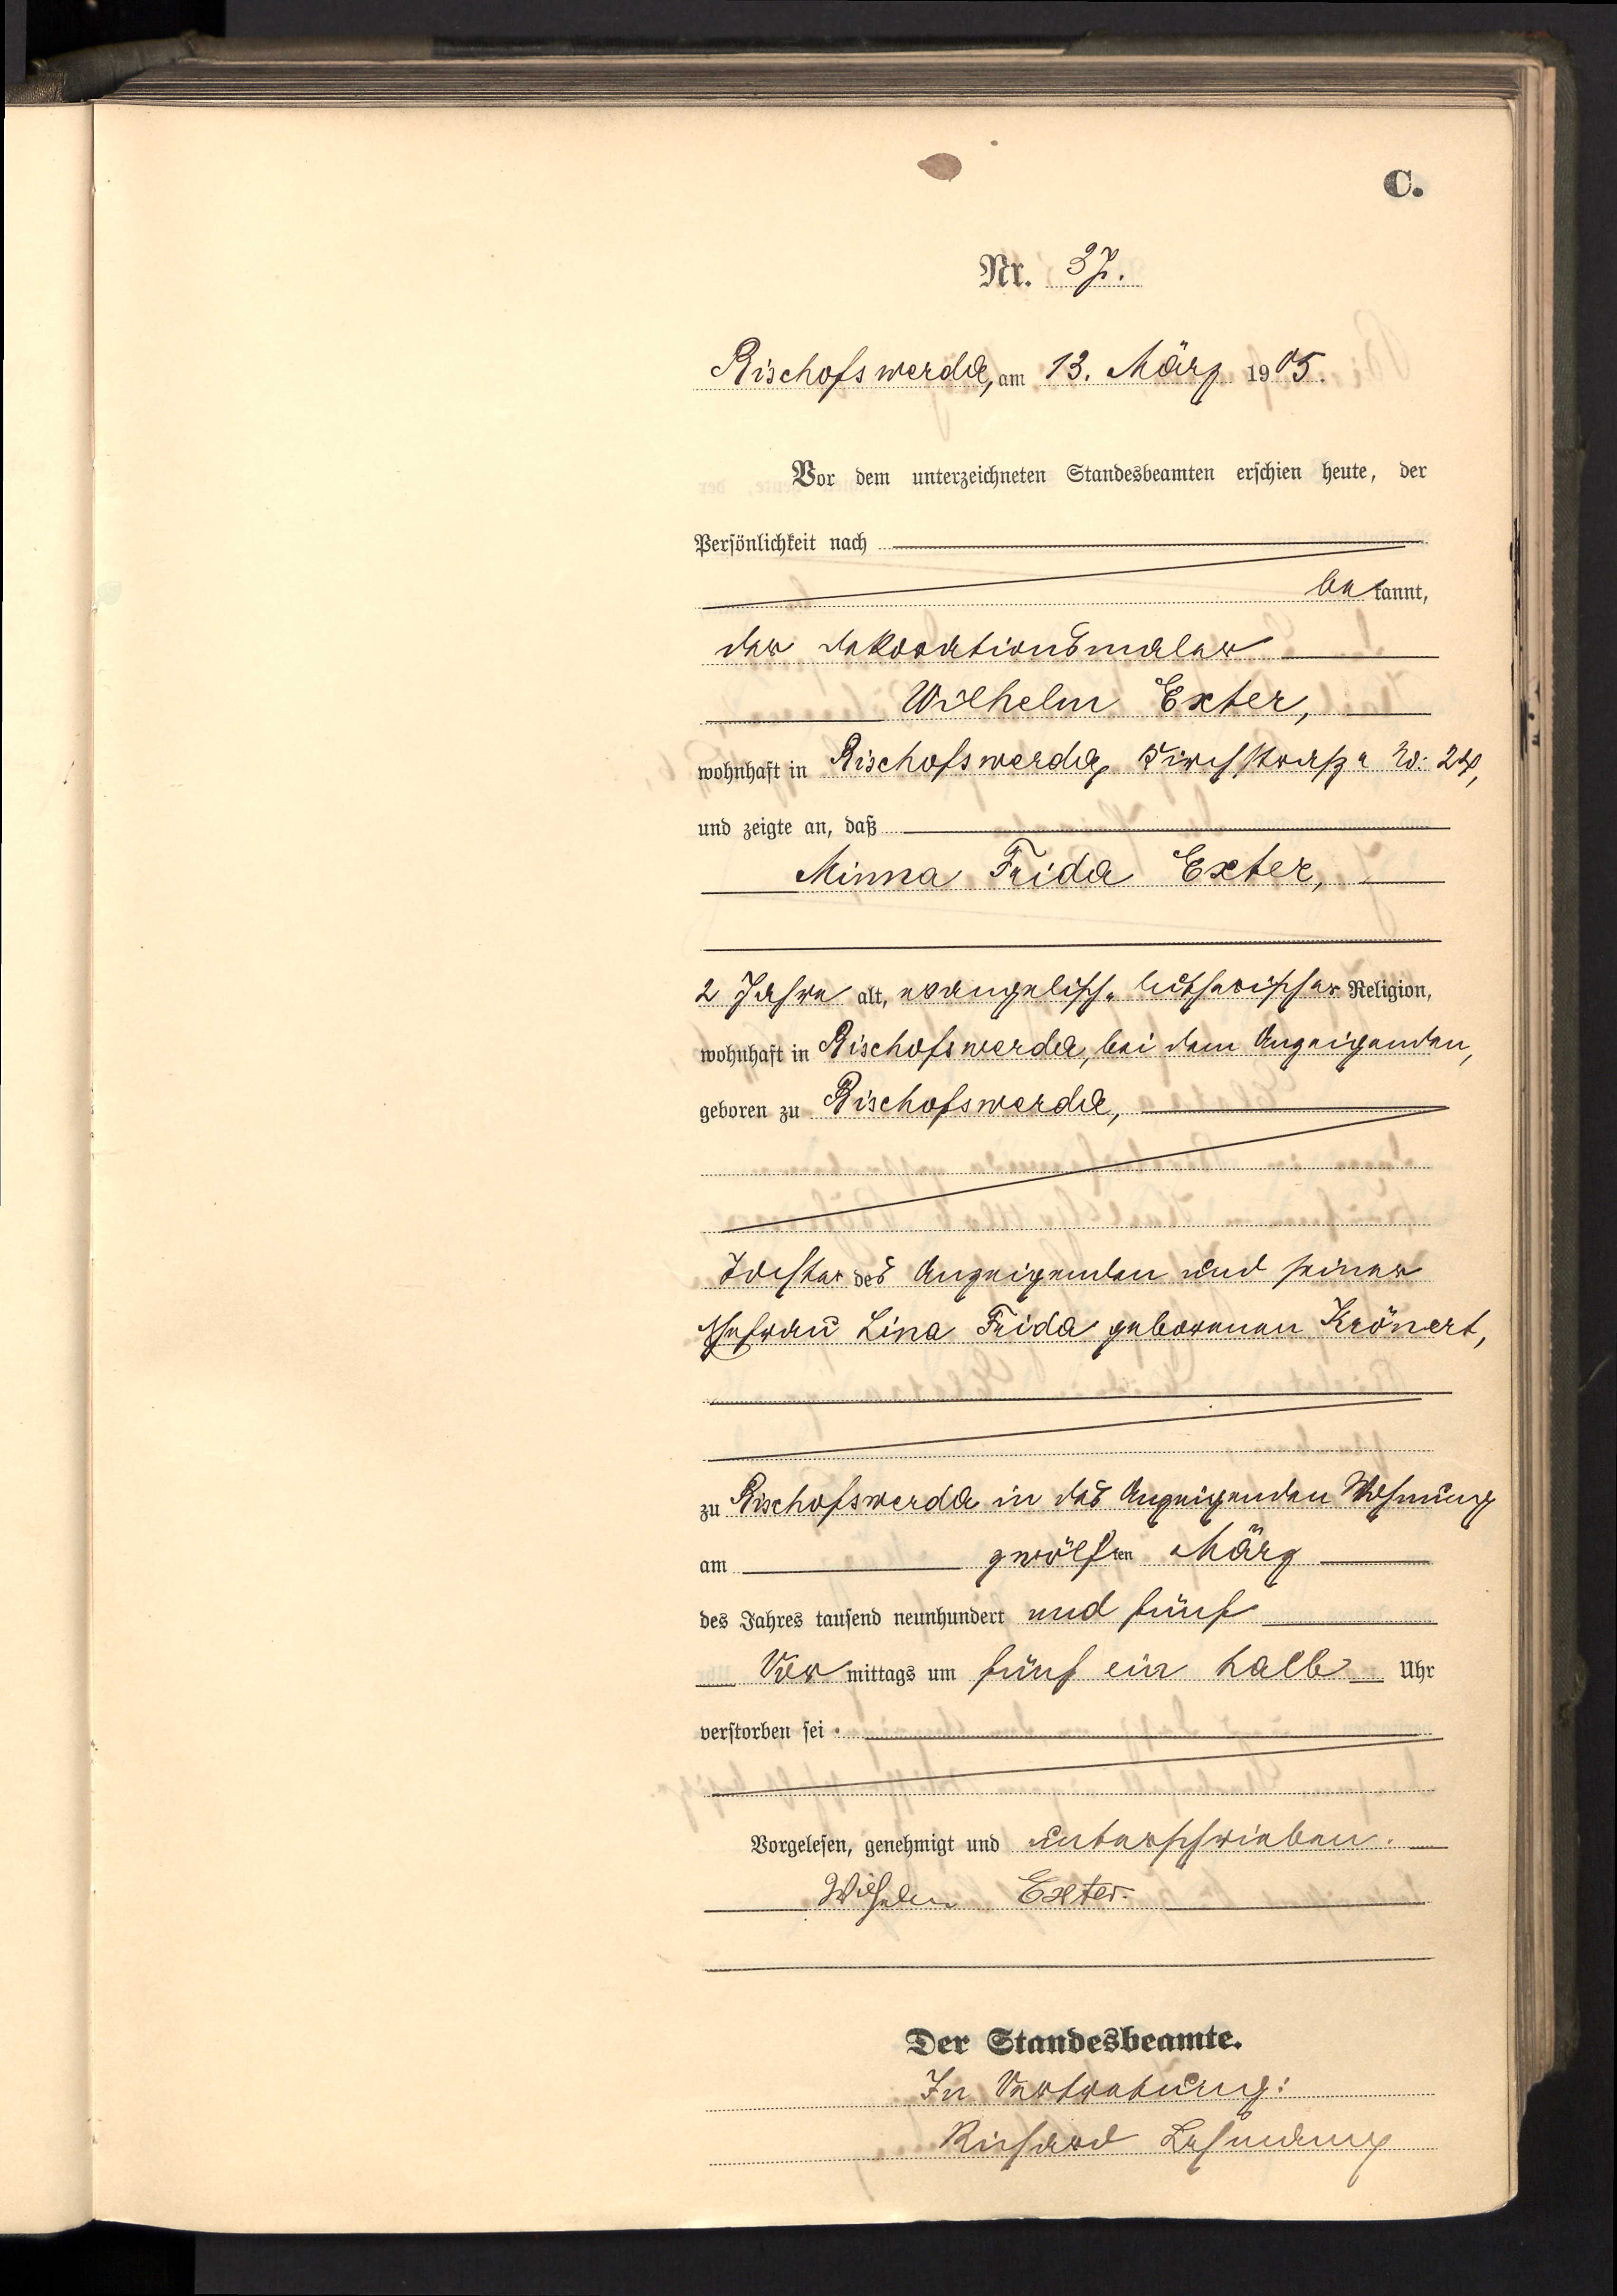 C.
Nr. 37.
Bischofswerda, am 13. März 1905.
Vor dem unterzeichneten Standesbeamten erschien heute, der
Persönlichkeit nach
bekannt,
der Dekorationsmaler
Wilhelm Exter,
wohnhaft in Bischofswerda, Kirchstraße No. 24,
und zeigte an, daß
Minna Frida Exter,
2 Jahre alt, evangelisch-lutherischer Religion,
wohnhaft in Bischofswerda, bei dem Anzeigenden,
geboren zu Bischofswerda,
Tochter des Anzeigenden und seiner
Ehefrau Lina Frida geborenen Krönert,
zu Bischofswerda in des Anzeigenden Wohnung
am zwölften März
des Jahres tausend neunhundert und fünf
Vormittags um fünf ein halb Uhr
verstorben sei.
Vorgelesen, genehmigt und unterschrieben.
Wilhelm Exter.
Der Standesbeamte.
In Vertretung:
Richard